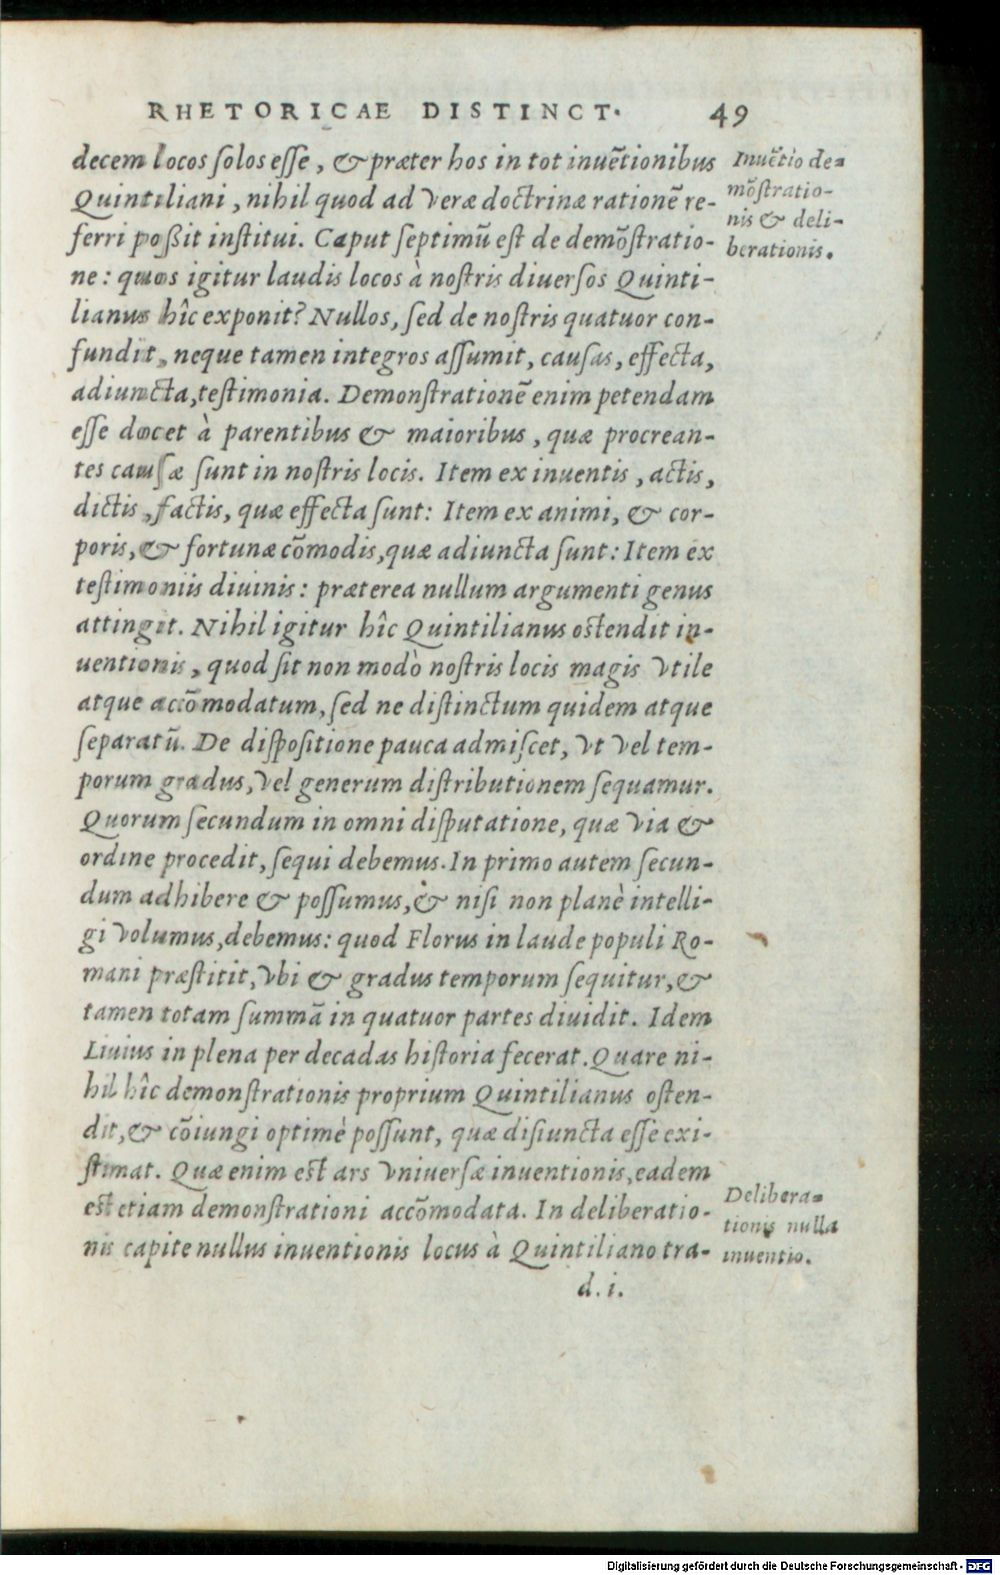 RHETORICAE DISTINCT. 49
decem locos solos esse, & præter hos in tot inuẽtionibus
Quintiliani, nihil quod ad veræ doctrinæ rationẽ re-
ferri poßit institui. Caput septimũ est de demõstratio-
ne: quos igitur laudis locos à nostris diuersos Quinti-
lianus hîc exponit? Nullos, sed de nostris quatuor con-
fundit, neque tamen integros assumit, causas, effecta,
adiuncta, testimonia. Demonstrationẽ enim petendam
esse docet à parentibus & maioribus, quæ procrean-
tes causæ sunt in nostris locis. Item ex inuentis, actis,
dictis, factis, quæ effecta sunt: Item ex animi, & cor-
poris, & fortunæ cõmodis, quæ adiuncta sunt: Item ex
testimoniis diuinis: præterea nullum argumenti genus
attingit. Nihil igitur hîc Quintilianus ostendit in-
uentionis, quod sit non modò nostris locis magis vtile
atque accõmodatum, sed ne distinctum quidem atque
separatũ. De dispositione pauca admiscet, vt vel tem-
porum gradus, vel generum distributionem sequamur.
Quorum secundum in omni disputatione, quæ via &
ordine procedit, sequi debemus. In primo autem secun-
dum adhibere & possumus, & nisi non planè intelli-
gi volumus, debemus: quod Florus in laude populi Ro-
mani præstitit, vbi & gradus temporum sequitur, &
tamen totam summã in quatuor partes diuidit. Idem
Liuius in plena per decadas historia fecerat. Quare ni-
hil hîc demonstrationis proprium Quintilianus osten-
dit, & cõiungi optimè possunt, quæ disiuncta esse exi-
stimat. Quæ enim est ars vniuersæ inuentionis, eadem
est etiam demonstrationi accõmodata. In deliberatio-
nis capite nullus inuentionis locus à Quintiliano tra-
d. i.
Inuẽtio de-
mõstratio-
nis & deli-
berationis.
Delibera-
tionis nulla
inuentio.
Digitalisierung gefördert durch die Deutsche Forschungsgemeinschaft - DFG